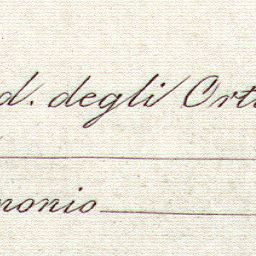 d. degli Orti
monio